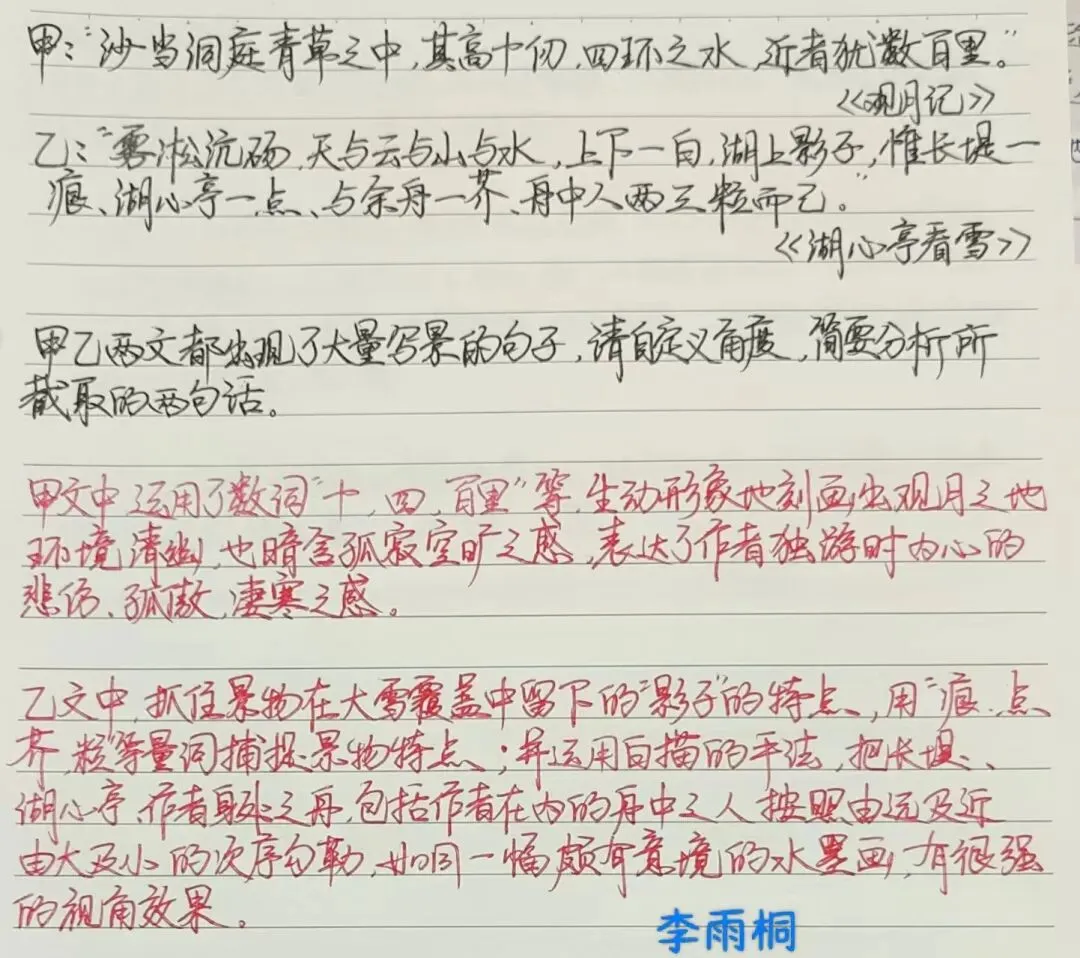 甲："沙当洞庭青草之中,其高十仞,四环之水,近者犹数百里。"
《观月记》
乙："雾凇沆砀,天与云与山与水,上下一白,湖上影子,惟长堤一
痕、湖心亭一点、与余舟一芥、舟中人两三粒而已。"
《湖心亭看雪》
甲乙两文都出现了大量写景的句子,请自定义角度,简要分析所
截取的两句话。
甲文中运用了数词"十、四、百里"等,生动形象地刻画出观月之地
环境清幽,也暗含孤寂空旷之感,表达了作者独游时内心的
悲伤、孤傲、凄寒之感。
乙文中,抓住景物在大雪覆盖中留下的"影子"的特点,用"痕、点、
芥、粒"等量词捕捉景物特点;并运用白描的手法,把长堤、
湖心亭、作者身处之舟,包括作者在内的舟中之人按照由远及近
由大及小的次序勾勒,如同一幅颇有意境的水墨画,有很强
的视角效果。
李雨桐